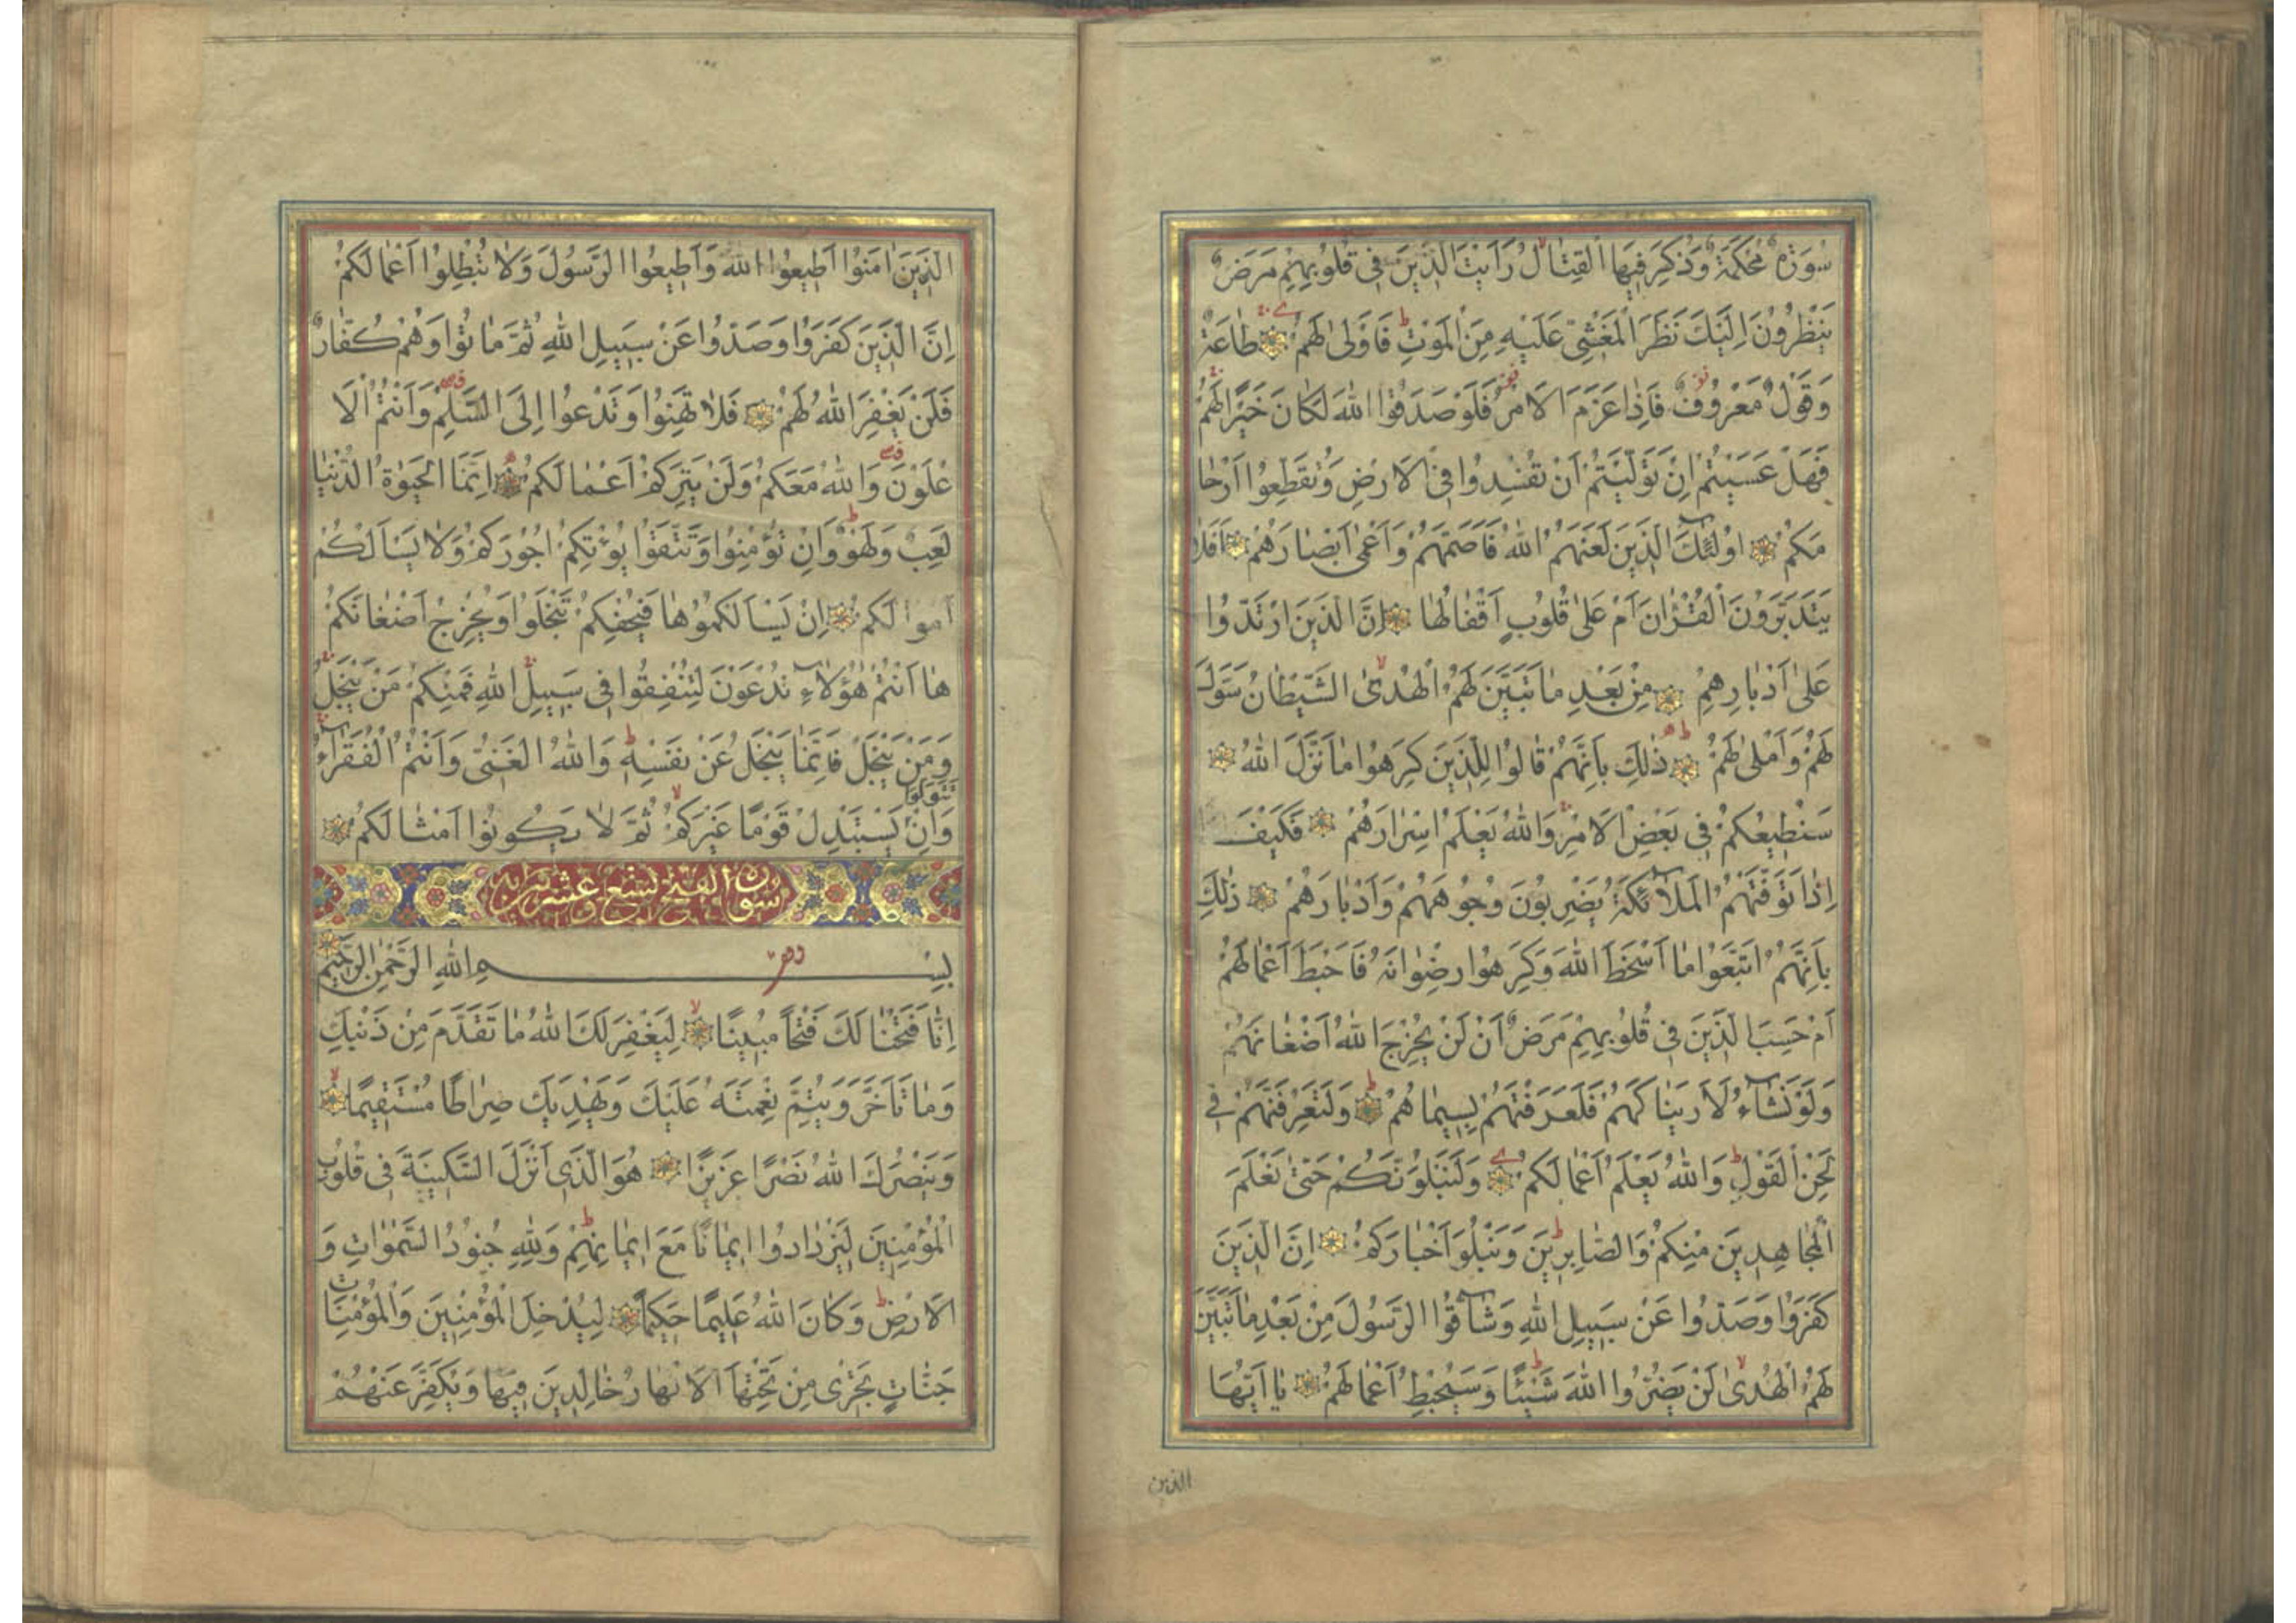 سُورَةٌ مُحْكَمَةٌ وَذُكِرَ فِيهَا الْقِتَالُ رَأَيْتَ الَّذِينَ فِي قُلُوبِهِمْ مَرَضٌ
يَنْظُرُونَ اِلَيْكَ نَظَرَ الْمَغْشِيِّ عَلَيْهِ مِنَ الْمَوْتِ فَاَوْلٰى لَهُمْ طَاعَةٌ
وَقَوْلٌ مَعْرُوفٌ فَاِذَا عَزَمَ الْاَمْرُ فَلَوْ صَدَقُوا اللّٰهَ لَكَانَ خَيْرًا لَهُمْ
فَهَلْ عَسَيْتُمْ اِنْ تَوَلَّيْتُمْ اَنْ تُفْسِدُوا فِي الْاَرْضِ وَتُقَطِّعُوا اَرْحَا
مَكُمْ اُولٰئِكَ الَّذِينَ لَعَنَهُمُ اللّٰهُ فَاَصَمَّهُمْ وَاَعْمٰى اَبْصَارَهُمْ اَفَلَا
يَتَدَبَّرُونَ الْقُرْاٰنَ اَمْ عَلٰى قُلُوبٍ اَقْفَالُهَا اِنَّ الَّذِينَ ارْتَدُّوا
عَلٰى اَدْبَارِهِمْ مِنْ بَعْدِ مَا تَبَيَّنَ لَهُمُ الْهُدَىٰ الشَّيْطَانُ سَوَّلَ
لَهُمْ وَاَمْلٰى لَهُمْ ذٰلِكَ بِاَنَّهُمْ قَالُوا لِلَّذِينَ كَرِهُوا مَا نَزَّلَ اللّٰهُ
سَنُطِيعُكُمْ فِي بَعْضِ الْاَمْرِ وَاللّٰهُ يَعْلَمُ اِسْرَارَهُمْ فَكَيْفَ
اِذَا تَوَفَّتْهُمُ الْمَلَائِكَةُ يَضْرِبُونَ وُجُوهَهُمْ وَاَدْبَارَهُمْ ذٰلِكَ
بِاَنَّهُمُ اتَّبَعُوا مَا اَسْخَطَ اللّٰهَ وَكَرِهُوا رِضْوَانَهُ فَاَحْبَطَ اَعْمَالَهُمْ
اَمْ حَسِبَ الَّذِينَ فِي قُلُوبِهِمْ مَرَضٌ اَنْ لَنْ يُخْرِجَ اللّٰهُ اَضْغَانَهُمْ
وَلَوْ نَشَاءُ لَاَرَيْنَاكَهُمْ فَلَعَرَفْتَهُمْ بِسِيمَاهُمْ وَلَتَعْرِفَنَّهُمْ فِي
لَحْنِ الْقَوْلِ وَاللّٰهُ يَعْلَمُ اَعْمَالَكُمْ وَلَنَبْلُوَنَّكُمْ حَتّٰى نَعْلَمَ
الْمُجَاهِدِينَ مِنْكُمْ وَالصَّابِرِينَ وَنَبْلُوَ اَخْبَارَكُمْ اِنَّ الَّذِينَ
كَفَرُوا وَصَدُّوا عَنْ سَبِيلِ اللّٰهِ وَشَاقُّوا الرَّسُولَ مِنْ بَعْدِ مَا تَبَيَّنَ
لَهُمُ الْهُدٰى لَنْ يَضُرُّوا اللّٰهَ شَيْئًا وَسَيُحْبِطُ اَعْمَالَهُمْ يَا اَيُّهَا
الذين
الَّذِينَ اٰمَنُوا اَطِيعُوا اللّٰهَ وَاَطِيعُوا الرَّسُولَ وَلَا تُبْطِلُوا اَعْمَالَكُمْ
اِنَّ الَّذِينَ كَفَرُوا وَصَدُّوا عَنْ سَبِيلِ اللّٰهِ ثُمَّ مَاتُوا وَهُمْ كُفَّارٌ
فَلَنْ يَغْفِرَ اللّٰهُ لَهُمْ فَلَا تَهِنُوا وَتَدْعُوا اِلَى السَّلْمِ وَاَنْتُمُ الْاَ
عْلَوْنَ وَاللّٰهُ مَعَكُمْ وَلَنْ يَتِرَكُمْ اَعْمَالَكُمْ اِنَّمَا الْحَيٰوةُ الدُّنْيَا
لَعِبٌ وَلَهْوٌ وَاِنْ تُؤْمِنُوا وَتَتَّقُوا يُؤْتِكُمْ اُجُورَكُمْ وَلَا يَسْاَلْكُمْ
اَمْوَالَكُمْ اِنْ يَسْاَلْكُمُوهَا فَيُحْفِكُمْ تَبْخَلُوا وَيُخْرِجْ اَضْغَانَكُمْ
هَا اَنْتُمْ هٰؤُلَاءِ تُدْعَوْنَ لِتُنْفِقُوا فِي سَبِيلِ اللّٰهِ فَمِنْكُمْ مَنْ يَبْخَلُ
وَمَنْ يَبْخَلْ فَاِنَّمَا يَبْخَلُ عَنْ نَفْسِهِ وَاللّٰهُ الْغَنِيُّ وَاَنْتُمُ الْفُقَرَاءُ
وَاِنْ تَتَوَلَّوْا يَسْتَبْدِلْ قَوْمًا غَيْرَكُمْ ثُمَّ لَا يَكُونُوا اَمْثَالَكُمْ
سورة الفتح تسع وعشرين اية
بِسْمِ اللّٰهِ الرَّحْمٰنِ الرَّحِيمِ
اِنَّا فَتَحْنَا لَكَ فَتْحًا مُبِينًا لِيَغْفِرَ لَكَ اللّٰهُ مَا تَقَدَّمَ مِنْ ذَنْبِكَ
وَمَا تَاَخَّرَ وَيُتِمَّ نِعْمَتَهُ عَلَيْكَ وَيَهْدِيَكَ صِرَاطًا مُسْتَقِيمًا
وَيَنْصُرَكَ اللّٰهُ نَصْرًا عَزِيزًا هُوَ الَّذِي اَنْزَلَ السَّكِينَةَ فِي قُلُوبِ
الْمُؤْمِنِينَ لِيَزْدَادُوا اِيمَانًا مَعَ اِيمَانِهِمْ وَلِلّٰهِ جُنُودُ السَّمٰوَاتِ وَ
الْاَرْضِ وَكَانَ اللّٰهُ عَلِيمًا حَكِيمًا لِيُدْخِلَ الْمُؤْمِنِينَ وَالْمُؤْمِنَاتِ
جَنَّاتٍ تَجْرِي مِنْ تَحْتِهَا الْاَنْهَارُ خَالِدِينَ فِيهَا وَيُكَفِّرَ عَنْهُمْ